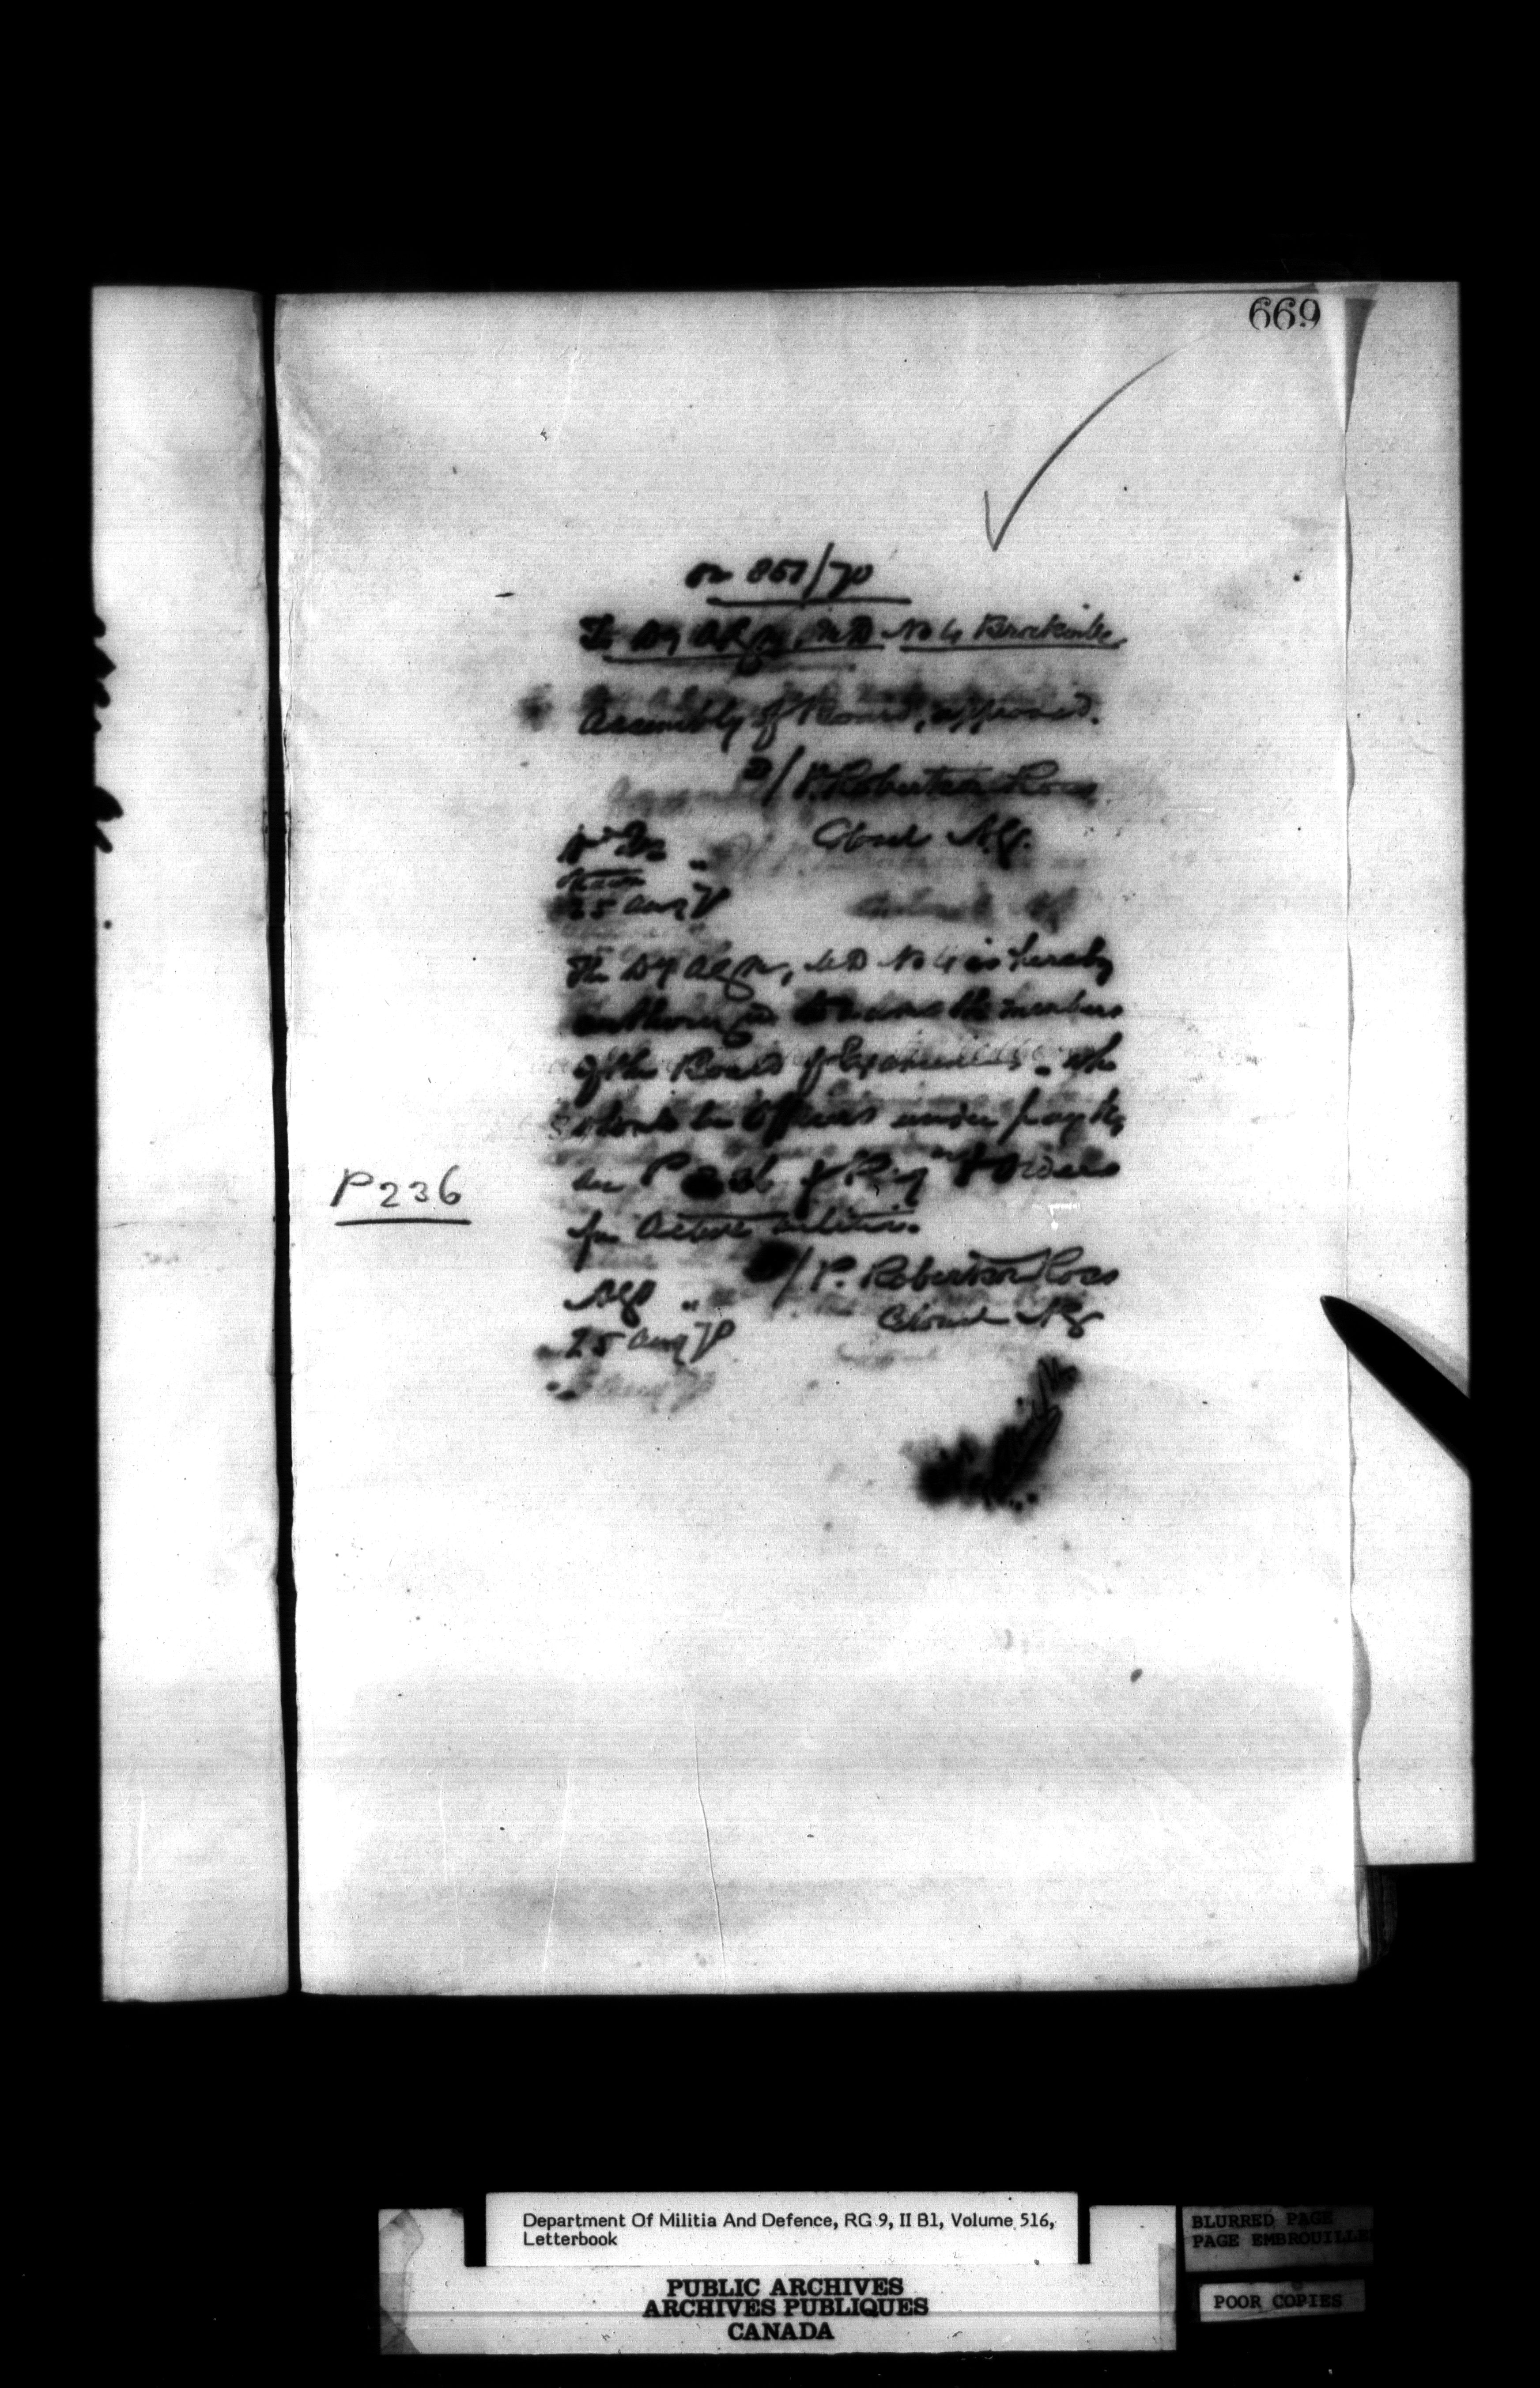 669
on 857/70
To DyAQMr, MD No 4 Brockville
Assembly of Board, approved.
/ P. Robertson Ross
Colonel AG.
25 Aug 70
The Dy AQMr, MD No 4 is hereby
authorized to name the members
of the Board of Examiners - who
should be Officers under pay
P 236
see P 236 of Reg & Orders
for Active militia.
/ P. Robertson Ross
Colonel AG
25 Aug 70
Department Of Militia And Defence, RG 9, II B1, Volume 516,
Letterbook
PUBLIC ARCHIVES
ARCHIVES PUBLIQUES
CANADA
BLURRED PAGE
PAGE EMBROUILLEE
POOR COPIES